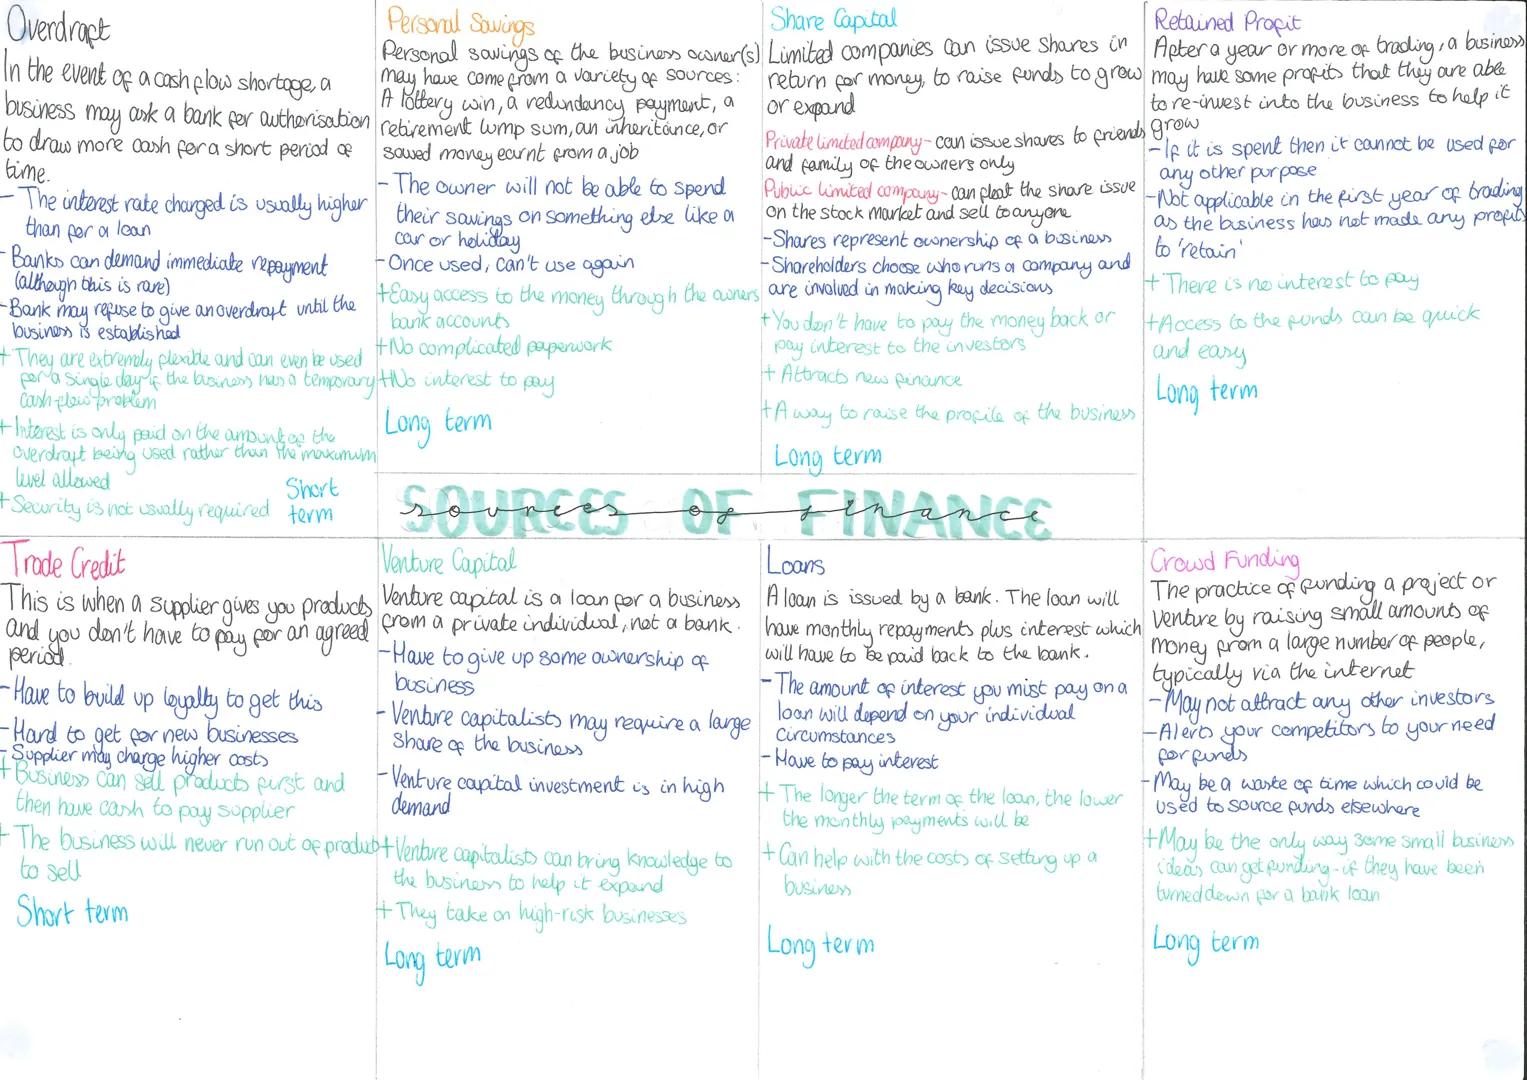 Overdraft
In the event of a cash flow shortage, a
business may ask a bank for authorisation
to draw more cash for a short period of
time.
- The interest rate charged is usually higher
than for a loan
- Banks can demand immediate repayment
(although this is rare)
- Bank may refuse to give an overdraft until the
business is established
+ They are extremely flexible and can even be used
for a single day if the business has a temporary
cash flow problem
+ Interest is only paid on the amount of the
overdraft being used rather than the maximum
level allowed
+ Security is not usually required
Short
term
Personal Savings
Personal savings of the business owner(s)
may have come from a variety of sources:
A lottery win, a redundancy payment, a
retirement lump sum, an inheritance, or
saved money earnt from a job
- The owner will not be able to spend
their savings on something else like a
car or holiday
- Once used, can't use again
+ Easy access to the money through the owners
bank accounts
+ No complicated paperwork
+ No interest to pay
Long term
Share Capital
Limited companies can issue shares in
return for money, to raise funds to grow
or expand
Private limited company - can issue shares to friends
and family of the owners only
Public limited company - can float the share issue
on the stock market and sell to anyone
- Shares represent ownership of a business
- Shareholders choose who runs a company and
are involved in making key decisions
+ You don't have to pay the money back or
pay interest to the investors
+ Attracts new finance
+ A way to raise the profile of the business
Long term
Retained Profit
After a year or more of trading, a business
may have some profits that they are able
to re-invest into the business to help it
grow
- If it is spent then it cannot be used for
any other purpose
- Not applicable in the first year of trading
as the business has not made any profits
to 'retain'
+ There is no interest to pay
+ Access to the funds can be quick
and easy
Long term
SOURCES OF FINANCE
sources of finance
Trade Credit
This is when a supplier gives you products
and you don't have to pay for an agreed
period.
- Have to build up loyalty to get this
- Hard to get for new businesses
- Supplier may charge higher costs
+ Business can sell products first and
then have cash to pay supplier
+ The business will never run out of product
to sell
Short term
Venture Capital
Venture capital is a loan for a business
from a private individual, not a bank.
- Have to give up some ownership of
business
- Venture capitalists may require a large
share of the business
- Venture capital investment is in high
demand
+ Venture capitalists can bring knowledge to
the business to help it expand
+ They take on high-risk businesses
Long term
Loans
A loan is issued by a bank. The loan will
have monthly repayments plus interest which
will have to be paid back to the bank.
- The amount of interest you must pay on a
loan will depend on your individual
circumstances
- Have to pay interest
+ The longer the term of the loan, the lower
the monthly payments will be
+ Can help with the costs of setting up a
business
Long term
Crowd Funding
The practice of funding a project or
venture by raising small amounts of
money from a large number of people,
typically via the internet
- May not attract any other investors
- Alerts your competitors to your need
for funds
- May be a waste of time which could be
used to source funds elsewhere
+ May be the only way some small business
ideas can get funding - if they have been
turned down for a bank loan
Long term